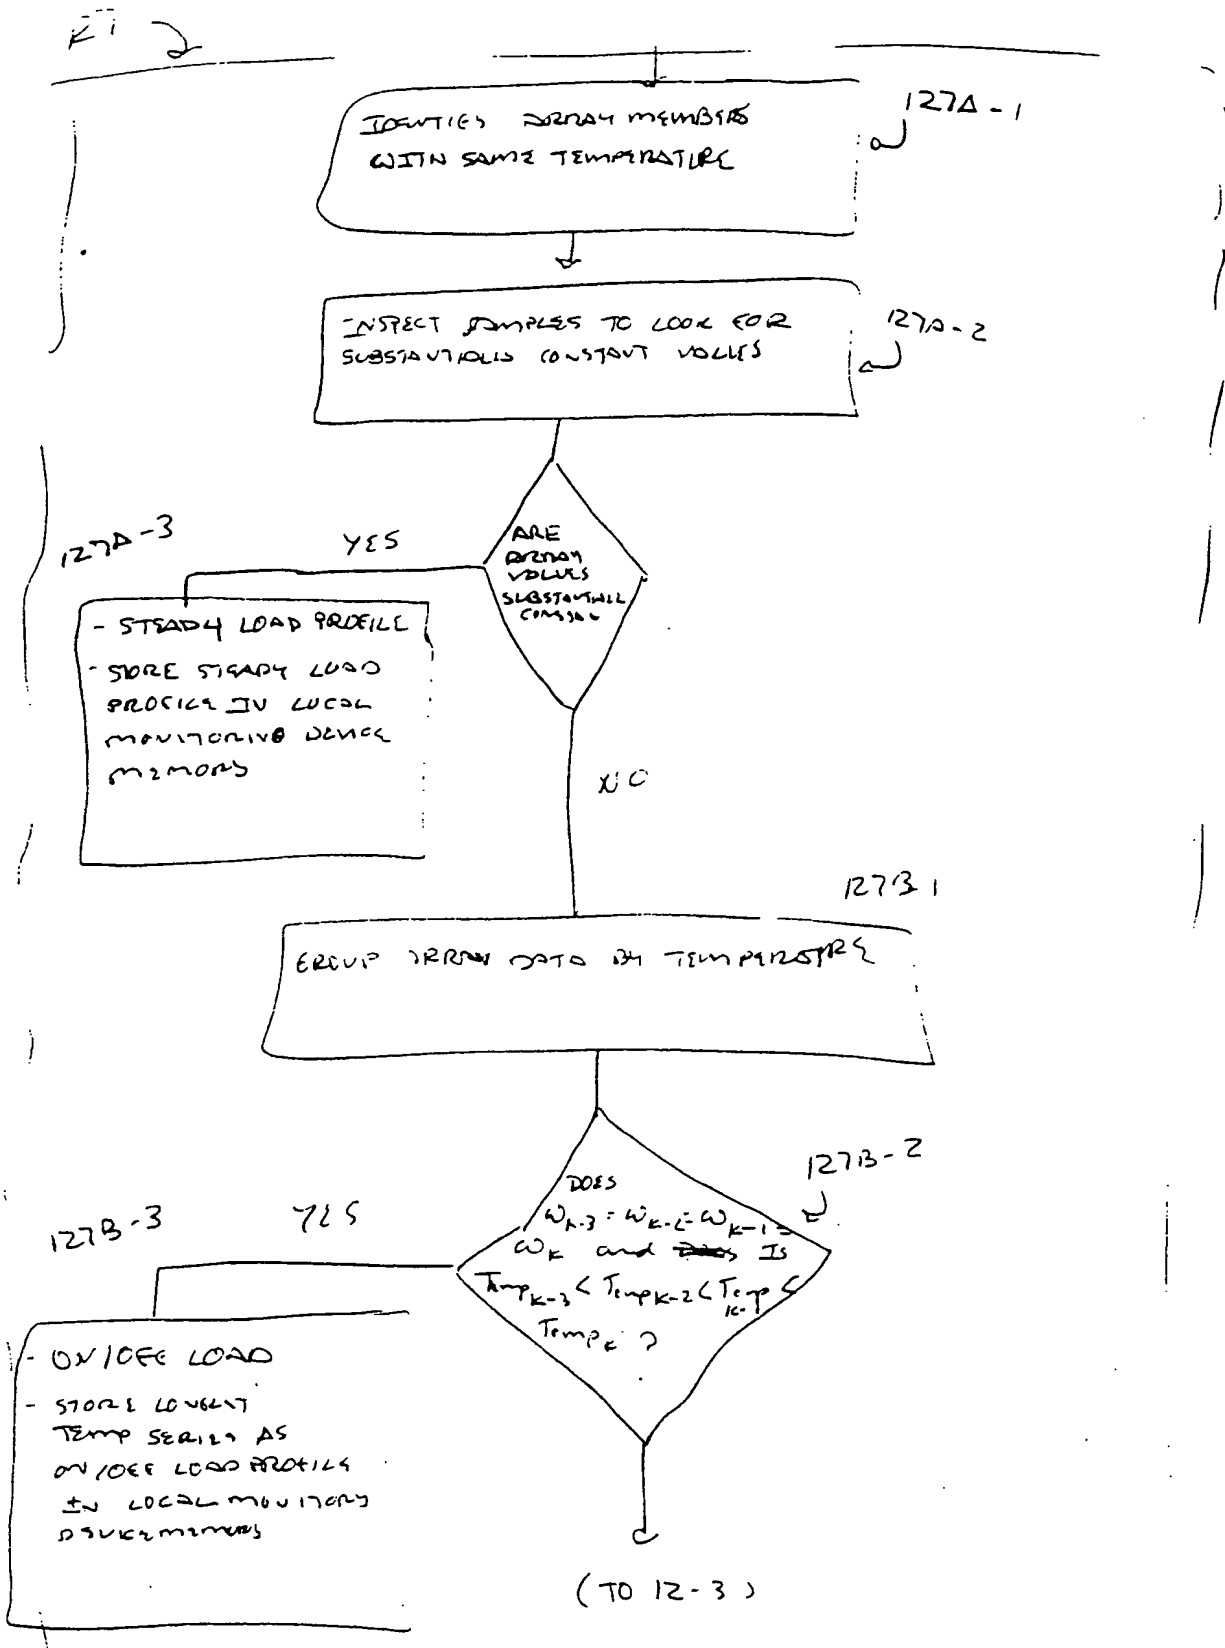 K1
127A-1
IDENTIFIES ARRAY MEMBERS
WITH SAME TEMPERATURE
127A-2
INSPECT SAMPLES TO LOOK FOR
SUBSTANTIALLY CONSTANT VALUES
127A-3
YES
ARE
ARRAY
VALUES
SUBSTANTIALL
- STEADY LOAD PROFILE
- STORE STEADY LOAD
PROFILE IN LOCAL
MONITORING DEVICE
MEMORY
NO
127B-1
GROUP ARRAY DATA BY TEMPERATURE
127B-2
127B-3
YES
DOES
ωk-3 = ωk-2 = ωk-1 =
ωk and Is
Tempk-3 < Tempk-2 < Tempk-1 <
Tempk ?
- ON/OFF LOAD
- STORE LOWEST
TEMP SERIES AS
ON/OFF LOAD PROFILE
IN LOCAL MONITORY
DEVICE MEMORY
(TO 12-3)